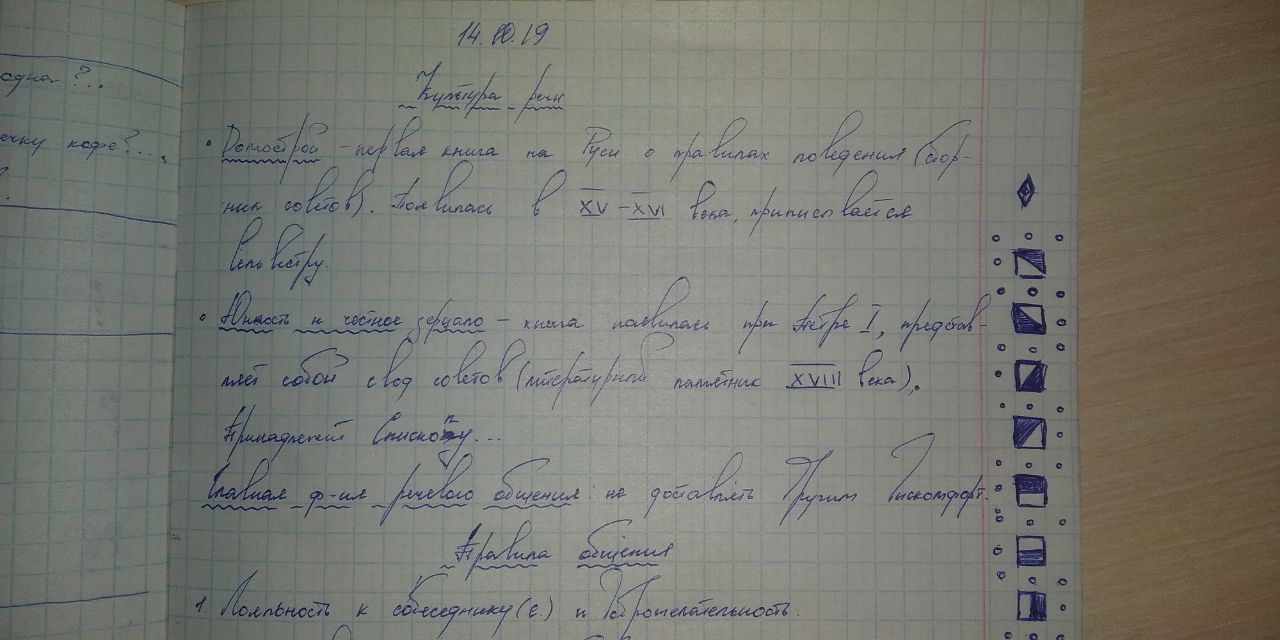 14.10.19
одна?..
Культура речи
ечку кофе?...
• Домострой - первая книга на Руси о правилах поведения (сбор-
ник советов). Появилась в XV-XVI века, приписывается
Сельвестру.
• Юность и честное зерцало - книга появилась при Петре I, представ-
ляет собой свод советов (литературный памятник XVIII века).
Принадлежит Епископу...
Главная ф-ия речевого общения: не доставлять другим дискомфорт.
Правила общения
1. Лояльность к собеседнику(с.) и доброжелательность.